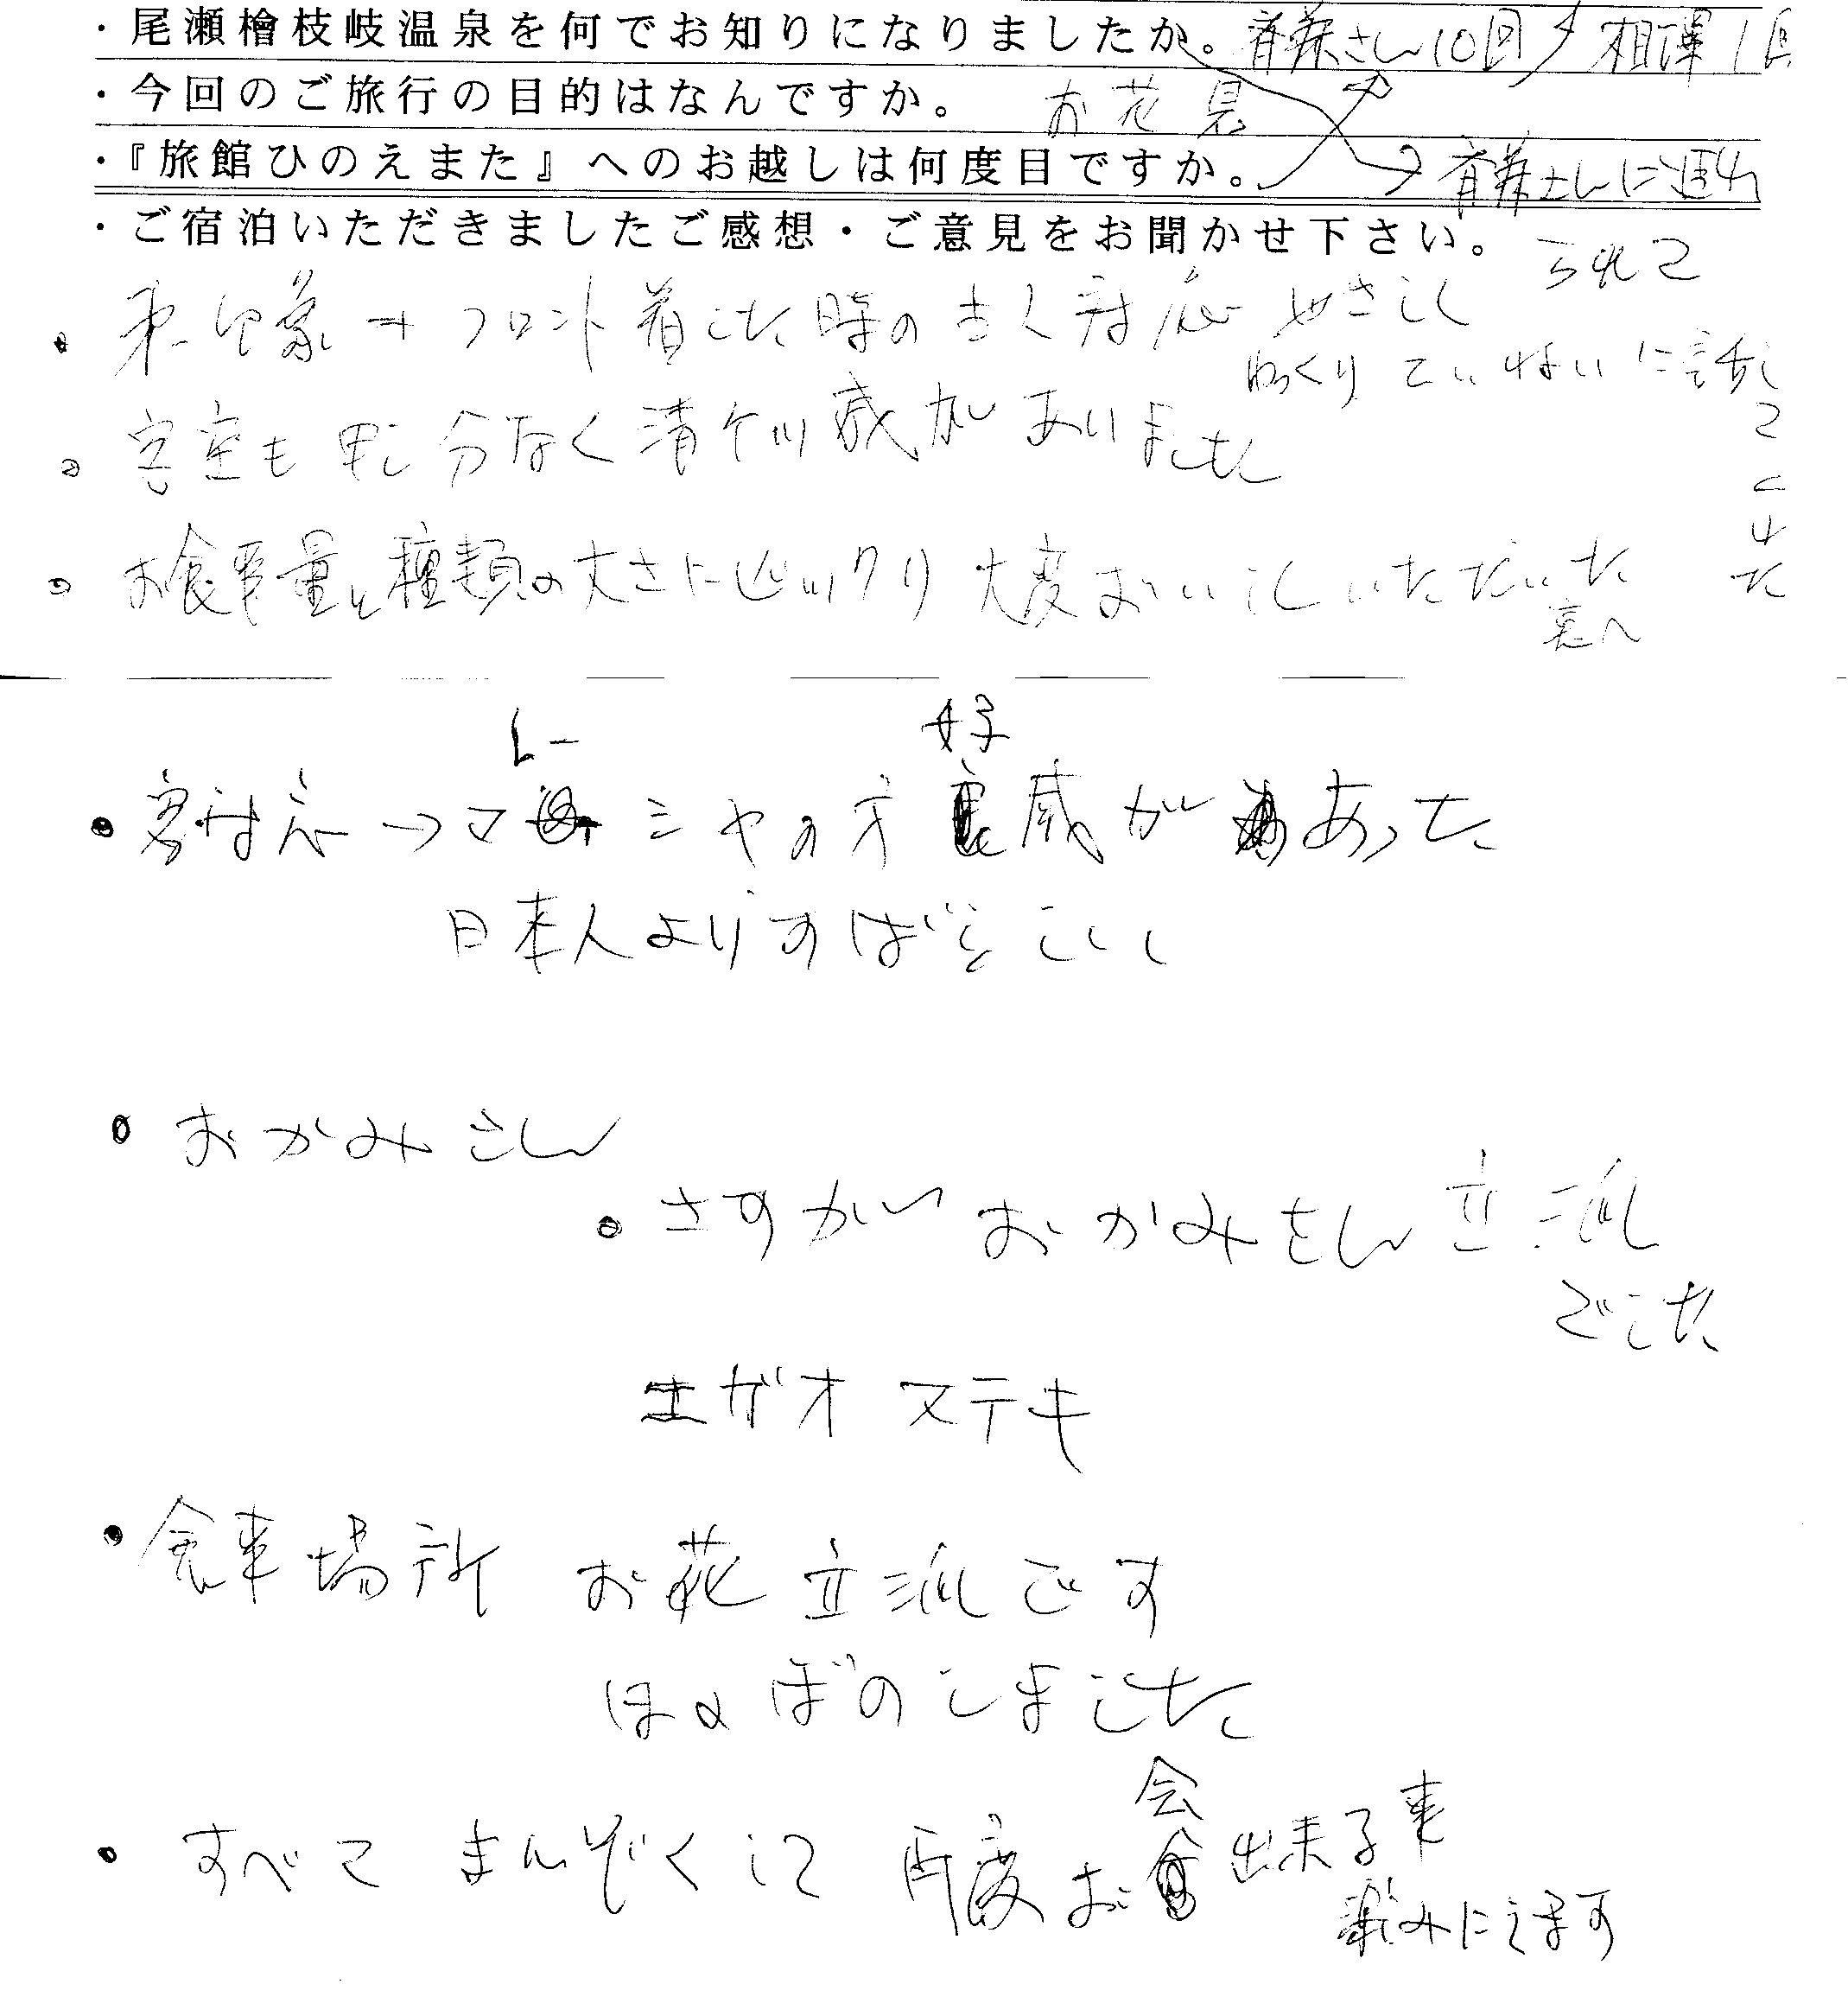 ・尾瀬檜枝岐温泉を何でお知りになりましたか。斉藤さん10回 相澤1回
・今回のご旅行の目的はなんですか。 お花見
・『旅館ひのえまた』へのお越しは何度目ですか。 斉藤さんに連れ
られて
・ご宿泊いただきましたご感想・ご意見をお聞かせ下さい。
・第一印象→フロント着した時の 対応 やさしく
ゆっくりていねいに話し
てくれた
・客室も申し分なく清ケツ感がありました
・お食事量と種類の大さにビックリ大度おいしくいただいた
裏へ
・客対応→マレーシヤの方好感があった
日本人よりすばらしい
・おかみさん
・さすがおかみさん立派
でした
エガオステキ
・食事場所 お花立派です
ほのぼのしました
・すべてまんぞくして再度お会出来る事
楽みにしてます